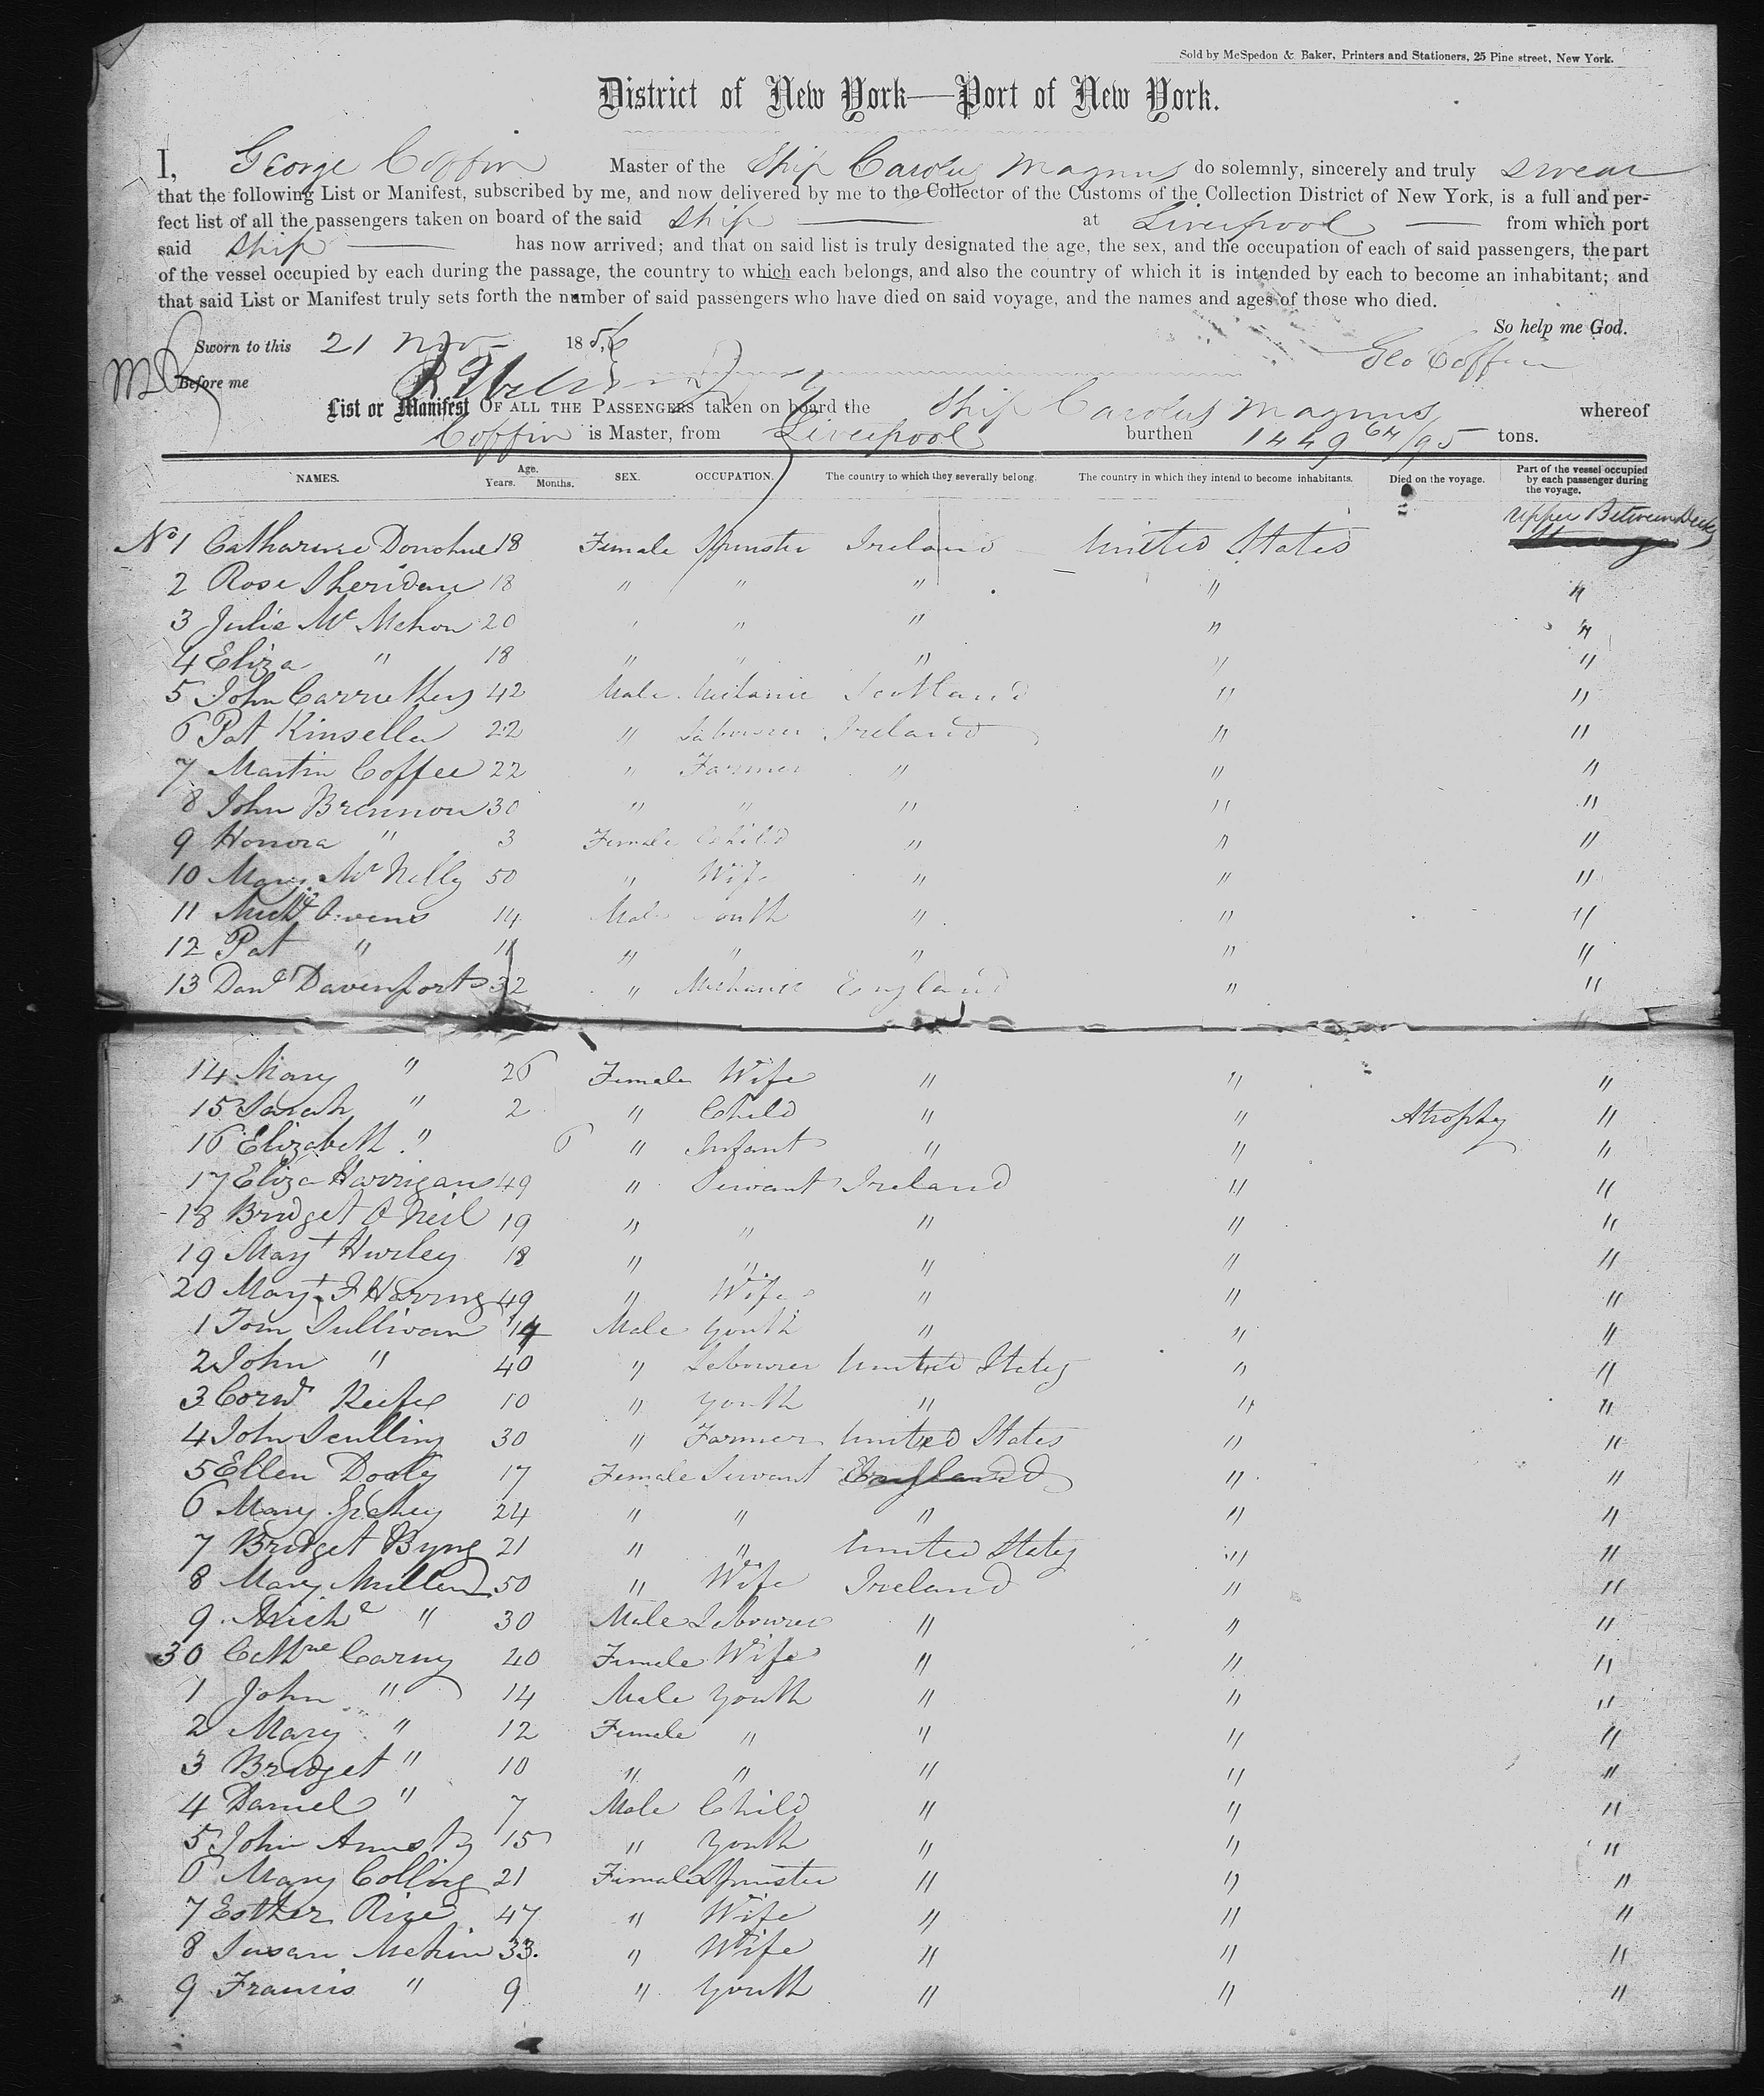 Sold by McSpedon & Baker, Printers and Stationers, 25 Pine street, New York.
District of New York—Port of New York.
I, George Coffin Master of the Ship Carolus Magnus do solemnly, sincerely and truly swear
that the following List or Manifest, subscribed by me, and now delivered by me to the Collector of the Customs of the Collection District of New York, is a full and per-
fect list of all the passengers taken on board of the said Ship — at Liverpool — from which port
said Ship — has now arrived; and that on said list is truly designated the age, the sex, and the occupation of each of said passengers, the part
of the vessel occupied by each during the passage, the country to which each belongs, and also the country of which it is intended by each to become an inhabitant; and
that said List or Manifest truly sets forth the number of said passengers who have died on said voyage, and the names and ages of those who died.
So help me God.
Sworn to this 21 Nov 1856
Geo Coffin
Before me
List or Manifest OF ALL THE PASSENGERS taken on board the Ship Carolus Magnus whereof
Coffin is Master, from Liverpool burthen 1449 64/95 tons.
NAMES. Age. Years. Months. SEX. OCCUPATION. The country to which they severally belong. The country in which they intend to become inhabitants. Died on the voyage. Part of the vessel occupied by each passenger during the voyage.
Upper Between Decks
No 1 Catharine Donohue 18 Female Spinster Ireland United States
2 Rose Sheridan 18 " " " " "
3 Julia Mc Mahon 20 " " " " "
4 Eliza " 18 " " " " "
5 John Carruthers 42 Male Mechanic Scotland " "
6 Pat Kinsella 22 " Labourer Ireland " "
7 Martin Coffee 22 " Farmer " " "
8 John Brennon 30 " " " " "
9 Honora " 3 Female Child " " "
10 Mary Mc Nelly 50 " Wife " " "
11 Michl Owens 14 Male Youth " " "
12 Pat " 11 " " " " "
13 Danl Davenport 32 " Mechanic England " "
14 Mary " 26 Female Wife " " "
15 Sarah " 2 " Child " " Atrophy "
16 Elizabeth " 6 " Infant " " "
17 Eliza Harrigan 49 " Servant Ireland " "
18 Bridget O Neil 19 " " " " "
19 Mart Hurley 18 " " " " "
20 Mart 49 " Wife " " "
1 Tom Sullivan 14 Male Youth " " "
2 John " 40 " Labourer United States " "
3 Corns Keefe 10 " Youth " " "
4 John Scullin 30 " Farmer United States " "
5 Ellen Dooly 17 Female Servant England " "
6 Mary 24 " " " " "
7 Bridget Byng 21 " " United States " "
8 Mary Mullen 50 " Wife Ireland " "
9 Michl " 30 Male Labourer " " "
30 Cathne Carny 40 Female Wife " " "
1 John " 14 Male Youth " " "
2 Mary " 12 Female " " " "
3 Bridget " 10 " " " " "
4 Daniel " 7 Male Child " " "
5 John 15 " Youth " " "
6 Mary Collins 21 Female Spinster " " "
7 Esther Rice 47 " Wife " " "
8 Susan Mekin 33 " Wife " " "
9 Francis " 9 " Youth " " "